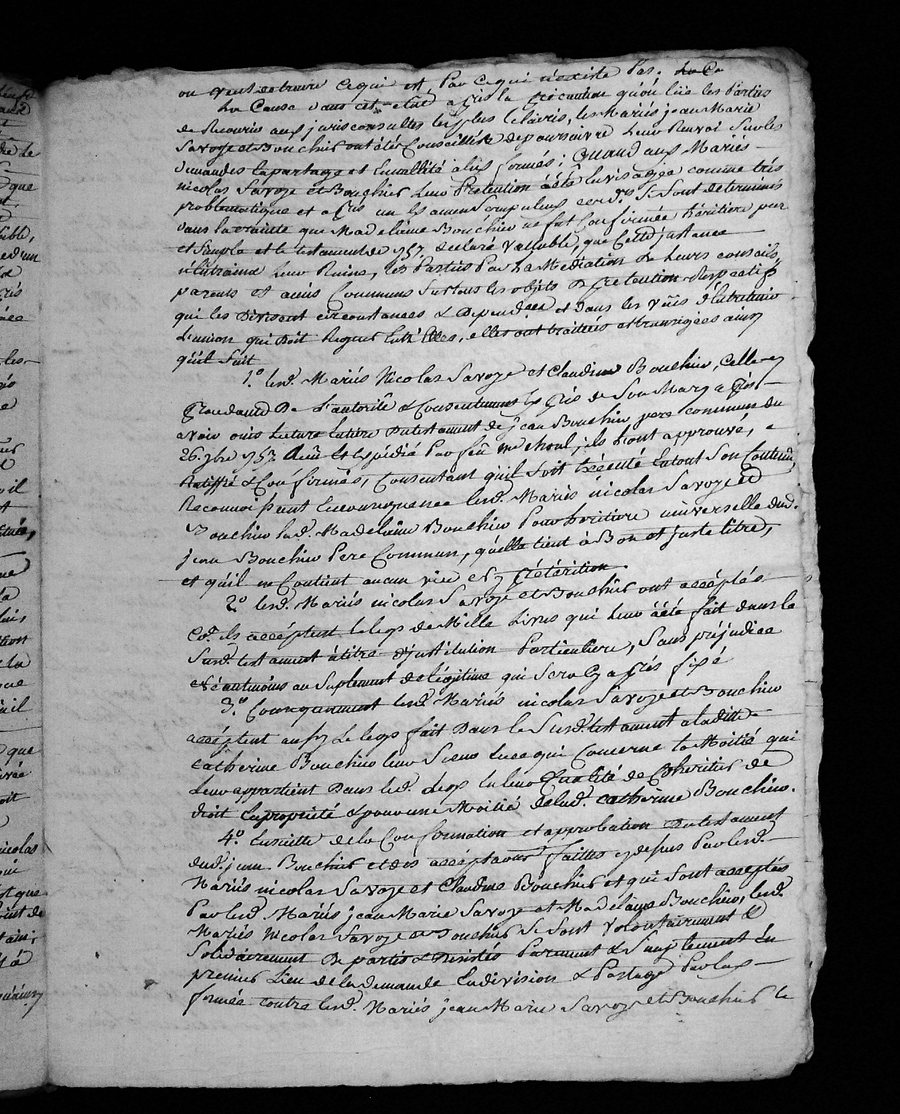 on peut detruire ce qui est, Par ce qui n'existe Pas.
La Cause dans cet etat après la precaution qu'ont eue les Parties
de Recourir aux jurisconsultes les plus Eclairés, les Mariés jean Marie
Savoye et Bouchiu ont été Conseillés de poursuivre Leur Renvoi Sur les
demandes en partage et en nullité à eux formés; Quand aux Mariés
nicolas Savoye et Bouchiu Leur Pretention a été Envisagée comme très
problematique et après un Examen scrupuleux Lesd.s Se Sont determinés
dans la crainte que Madelaine Bouchiu ne fut Confirmée héritiere pure
et Simple et le testament de 1757 declaré Vallable, que Cette instance
n'Entraina Leur Ruine, les Parties Par La Médiation de Leurs conseils,
parents et amis Communs Sur tous les objets de pretention Respectifs
qui les divisent circonstances & dependances et dans les vües d'Entretenir
L'union qui doit Regner Entr'Elles, elles ont traittées et transigées ainsy
qu'il Suit
1.o Lesd. Mariés Nicolas Savoye et Claudine Bouchiu, Celle cy
procedant De L'autorité & Consentement Exprès de Son Mary après
avoir ouis Lecture Entiere Du testament de jean Bouchiu pere commun du
26. 9bre 1753 Reçu Et Expédié Par feu me choul, ils L'ont approuvé,
Ratiffié & Confirmés, Consentant qu'il Soit Exécuté En tout Son Contenu,
Reconnoissent En consequence Lesd. Mariés nicolas Savoye et
Bouchiu Lad. Madelaine Bouchiu Pour héritiere universelle dud.
jean Bouchiu Pere Commun, quelle tient à Bon et juste titre,
et qu'il ne Contient aucun vice et ny prétérition
2.o Lesd. Mariés nicolas Savoye et Bouchiu ont acceptés
Co.e ils acceptent Le legs de Mille Livres qui Leur a été fait dans le
Susd. testament à titre d'institution Particuliere, Sans préjudice
Néantmoins au Suplement de légitime qui Sera Cy après fixé
3.o Conséquemment Lesd. Mariés nicolas Savoye et Bouchiu
acceptent aussy Le legs fait Dans le Susd. testament a ladite
Catherine Bouchiu Leur Sœur En ce qui Concerne la Moitié qui
Leur appartient Dans led. Legs En leur Qualité de Cohéritiers de
droit En proprieté & pour une Moitié de Lad. Catherine Bouchiu.
4.o Ensuitte de la Confirmation et approbation Du testament
dud. jean Bouchiu et des acceptations faittes cy dessus Par lesd.
Mariés nicolas Savoye et Claudine Bouchiu et qui Sont acceptés
Par lesd. Mariés jean Marie Savoye et Madelaine Bouchiu, lesd.
Mariés Nicolas Savoye et Bouchiu Se Sont Volontairement &
Solidairement De partis & Desistés Purement & Simplement En
premier Lieu de la demande En division & Partage Par eux
formée contre lesd. Mariés jean Marie Savoye et Bouchiu le